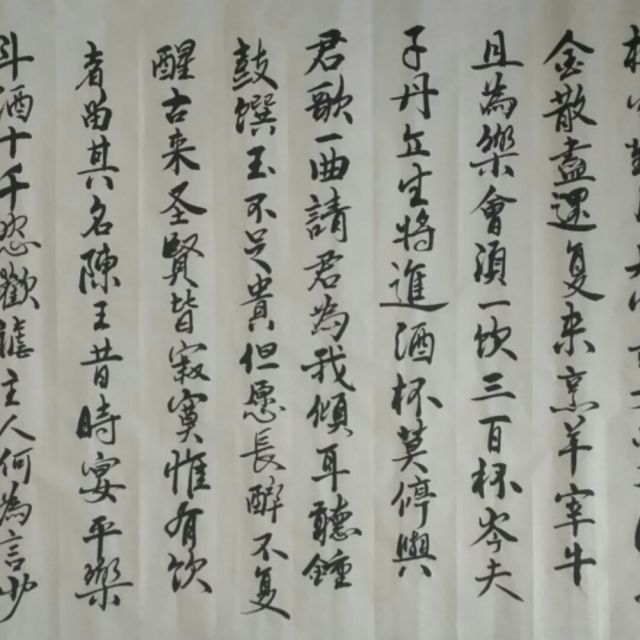 金散盡還复来烹羊宰牛
且為樂會須一饮三百杯岑夫
子丹丘生将進酒杯莫停與
君歌一曲請君為我傾耳聽鍾
鼓馔玉不足貴但愿長醉不复
醒古来圣賢皆寂寞惟有饮
者留其名陳王昔時宴平樂
斗酒十千恣歡謔主人何為言少